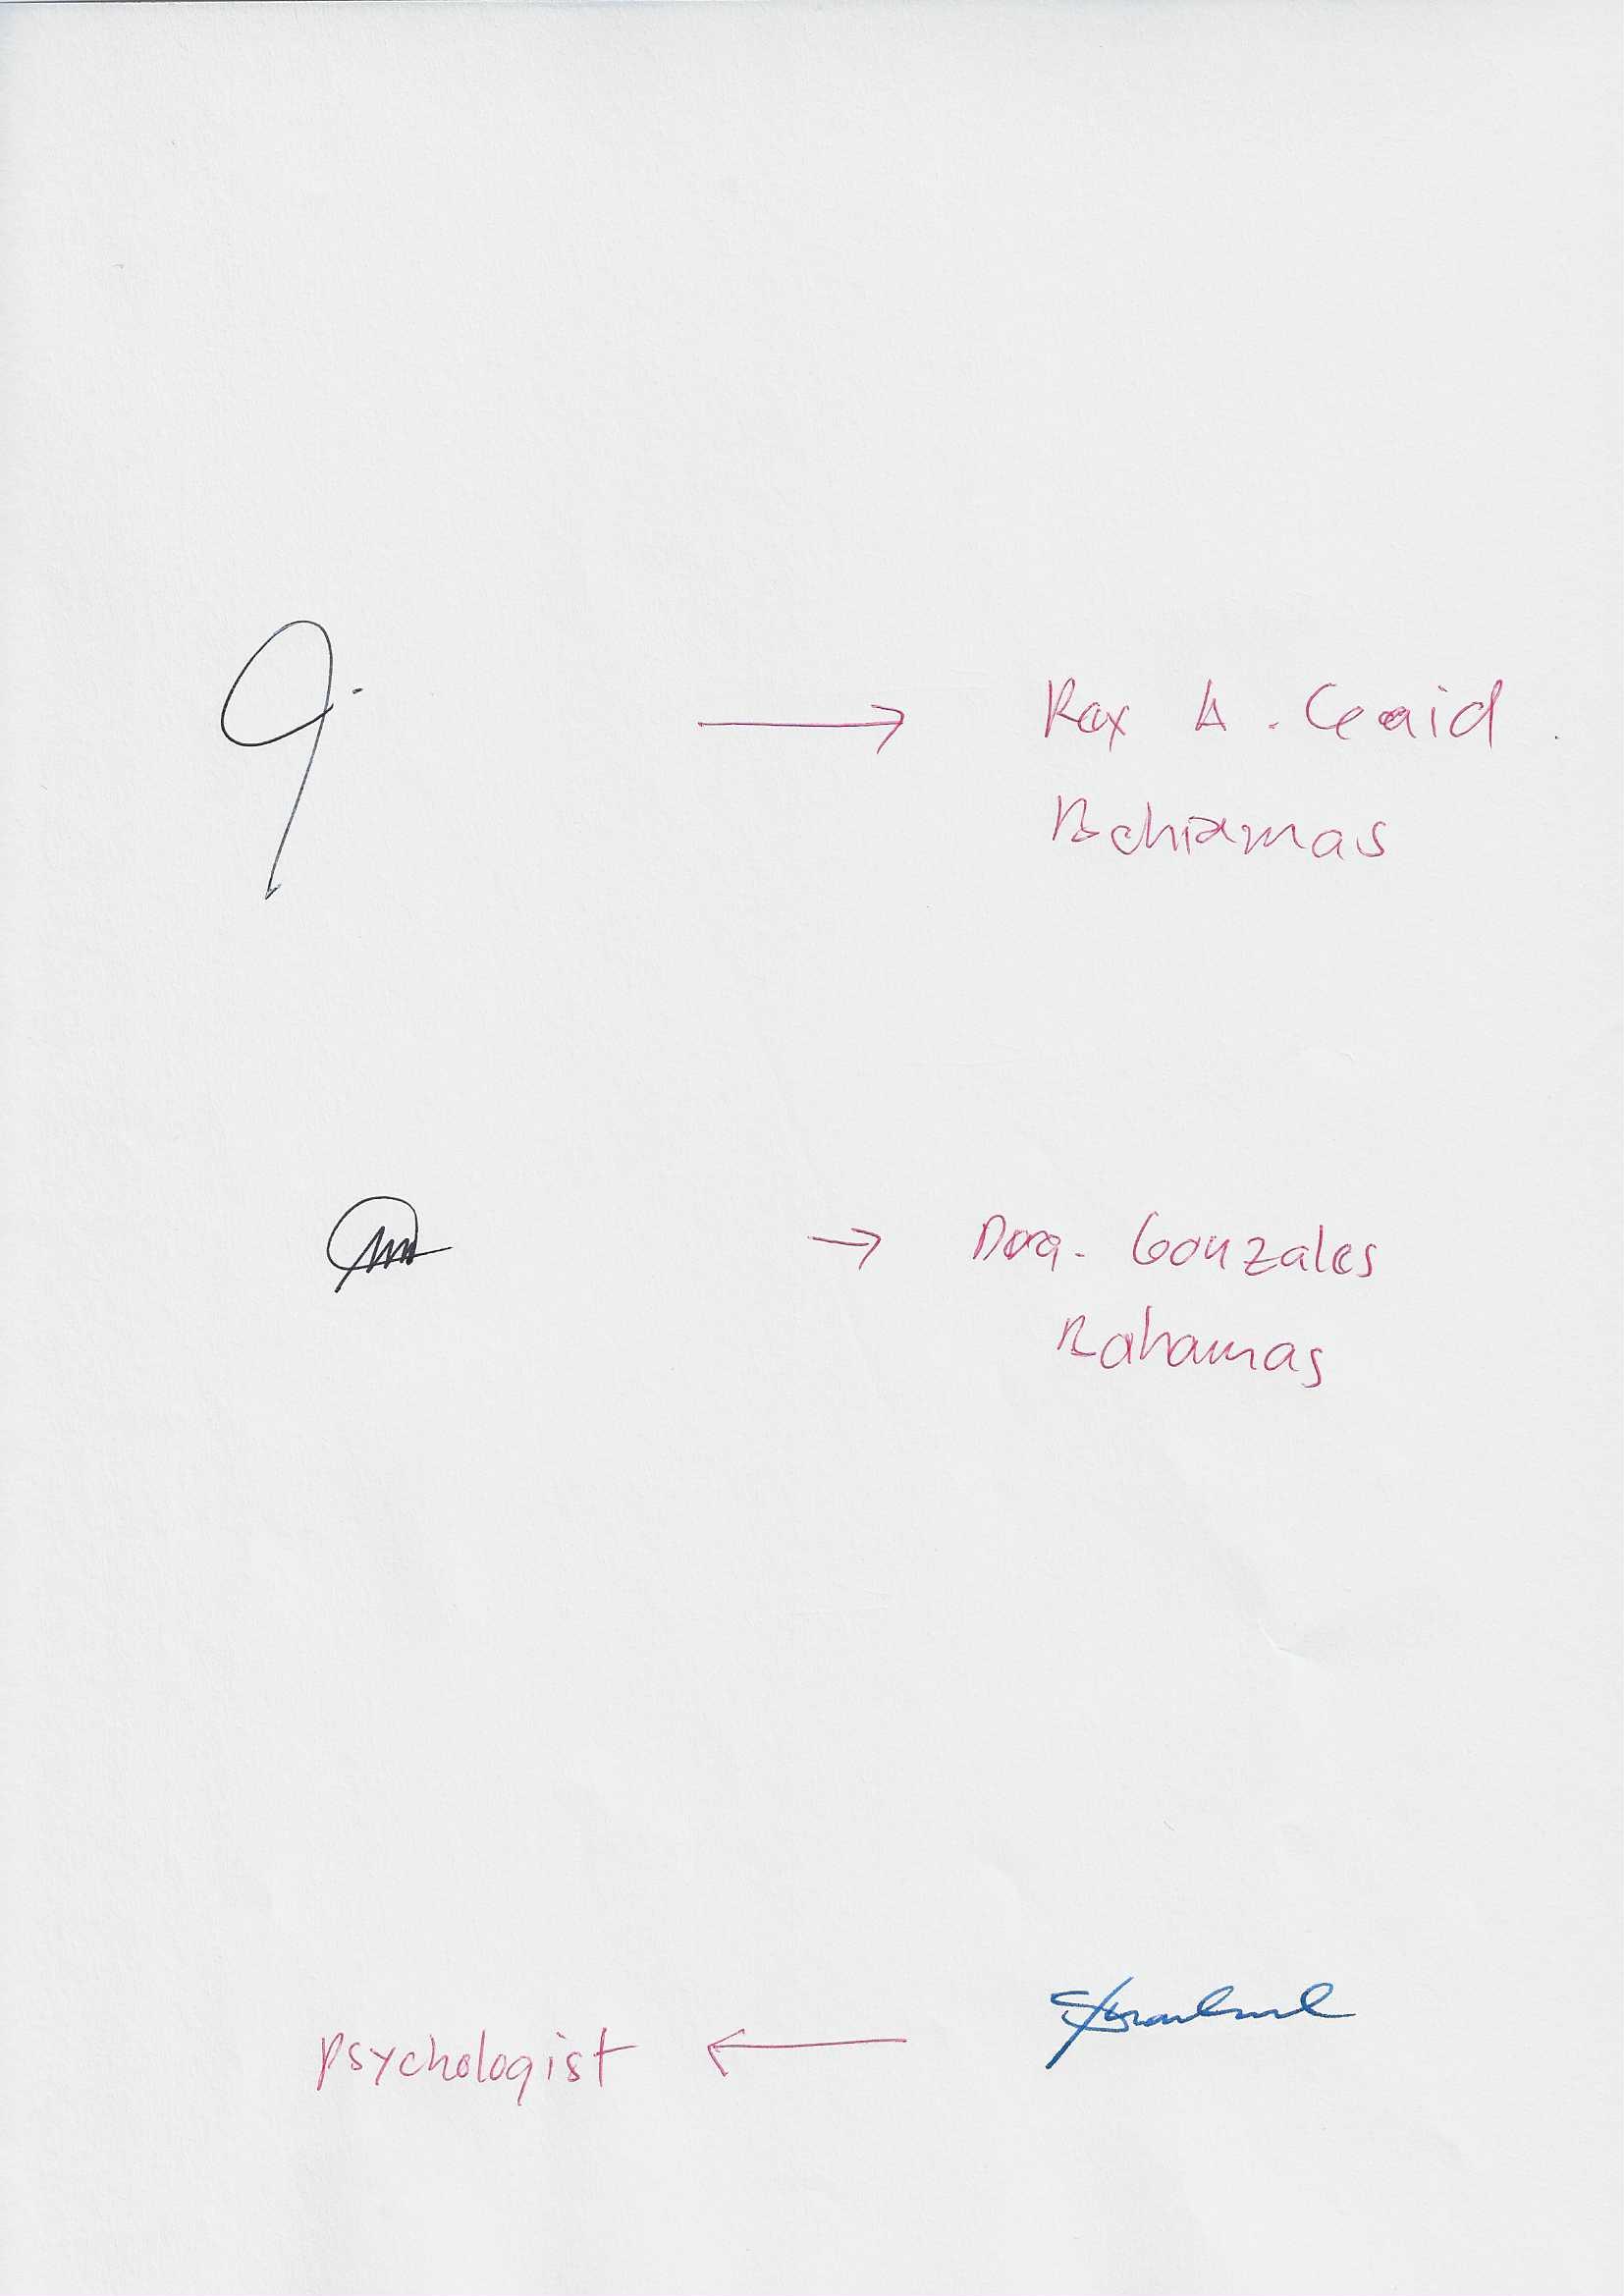 → Rox A. Ceaid
Bahamas
→ Dora. Gonzales
Bahamas
psychologist ←